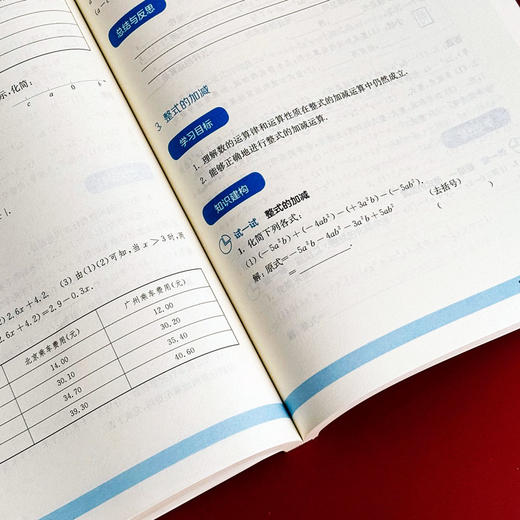 示，化简：
c a 0 b
(2) 2.6x+4.2. (3) 由(1)(2)可知，当 x＞3 时，两
2.6x+4.2)=2.9-0.3x.
北京乘车费用(元) 广州乘车费用(元)
14.00 12.00
30.10 30.20
34.70 35.40
39.30 40.60
总结与反思
3. 整式的加减
学习目标
1. 理解数的运算律和运算性质在整式的加减运算中仍然成立.
2. 能够正确地进行整式的加减运算.
知识建构
试一试 整式的加减
1. 化简下列各式：
(1) (-5a²b)+(-4ab²)-(+3a²b)-(-5ab²).
解：原式=-5a²b-4ab²-3a²b+5ab² (去括号)
=________. ( )